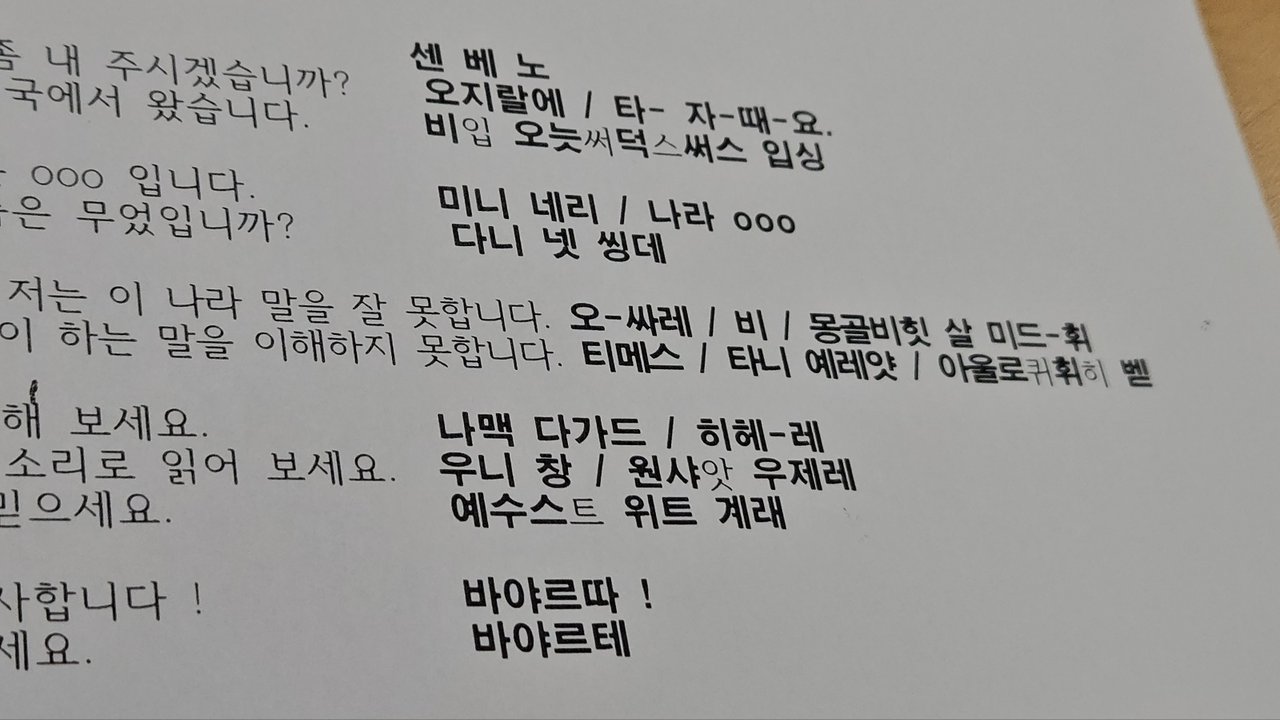 좀 내 주시겠습니까? 센 베 노
국에서 왔습니다. 오지랄에 / 타- 자-때-요.
비입 오늣써덕스써스 입싱
ooo 입니다. 미니 네리 / 나라 ooo
은 무었입니까? 다니 넷 씽데
저는 이 나라 말을 잘 못합니다. 오-싸레 / 비 / 몽골비힛 살 미드-휘
이 하는 말을 이해하지 못합니다. 티메스 / 타니 예레얏 / 아울로퀴휘히 벧
해 보세요. 나맥 다가드 / 히헤-레
소리로 읽어 보세요. 우니 창 / 원샤앗 우제레
믿으세요. 예수스트 위트 계래
사합니다 ! 바야르따 !
세요. 바야르테